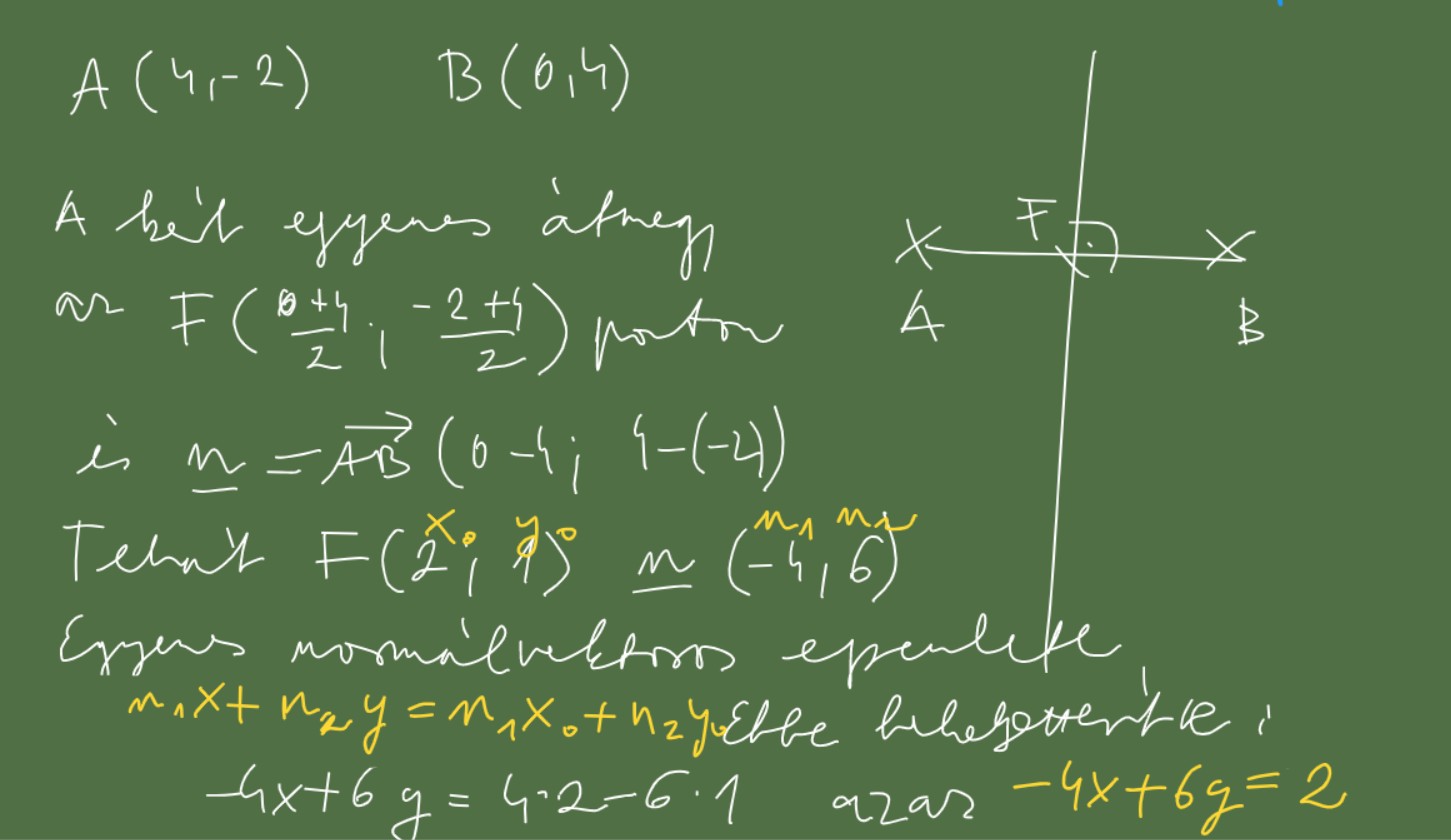 A(4,-2) B(0,4)
A két egyenes átmegy
az F(0+4/2; -2+4/2) ponton
F
A B
és n = AB(0-4; 4-(-2))
x₀ y₀ n₁ n₂
Tehát F(2; 1) n(-4, 6)
Egyenes normálvektoros egyenlete
n₁x + n₂y = n₁x₀ + n₂y₀ Ebbe behelyettesítve:
-4x+6y = 4·2-6·1 azaz -4x+6y=2